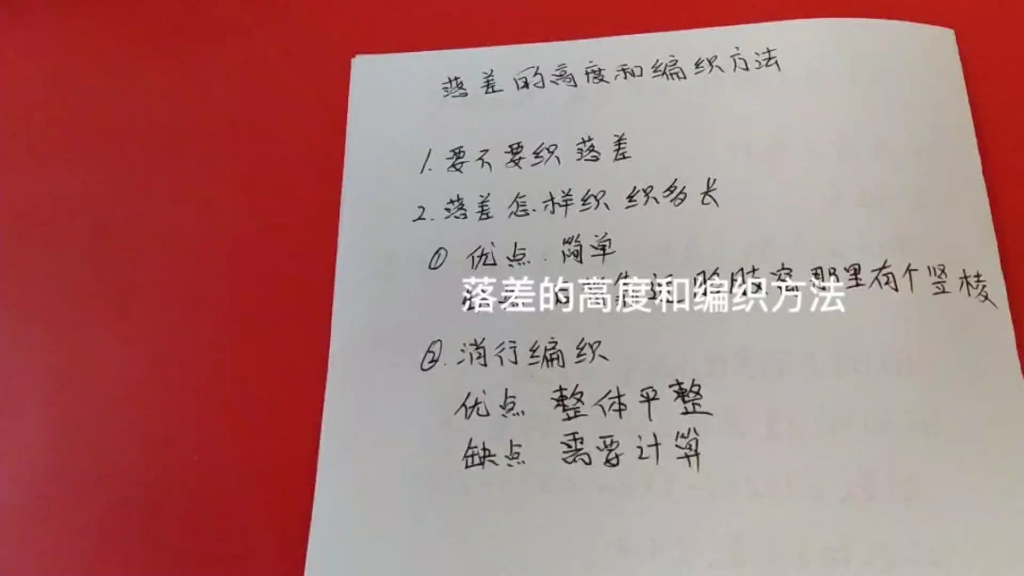 落差的高度和编织方法
1.要不要织 落差
2.落差怎样织 织多长
① 优点.简单
那里有个竖棱
落差的高度和编织方法
②.消行编织
优点 整体平整
缺点 需要计算